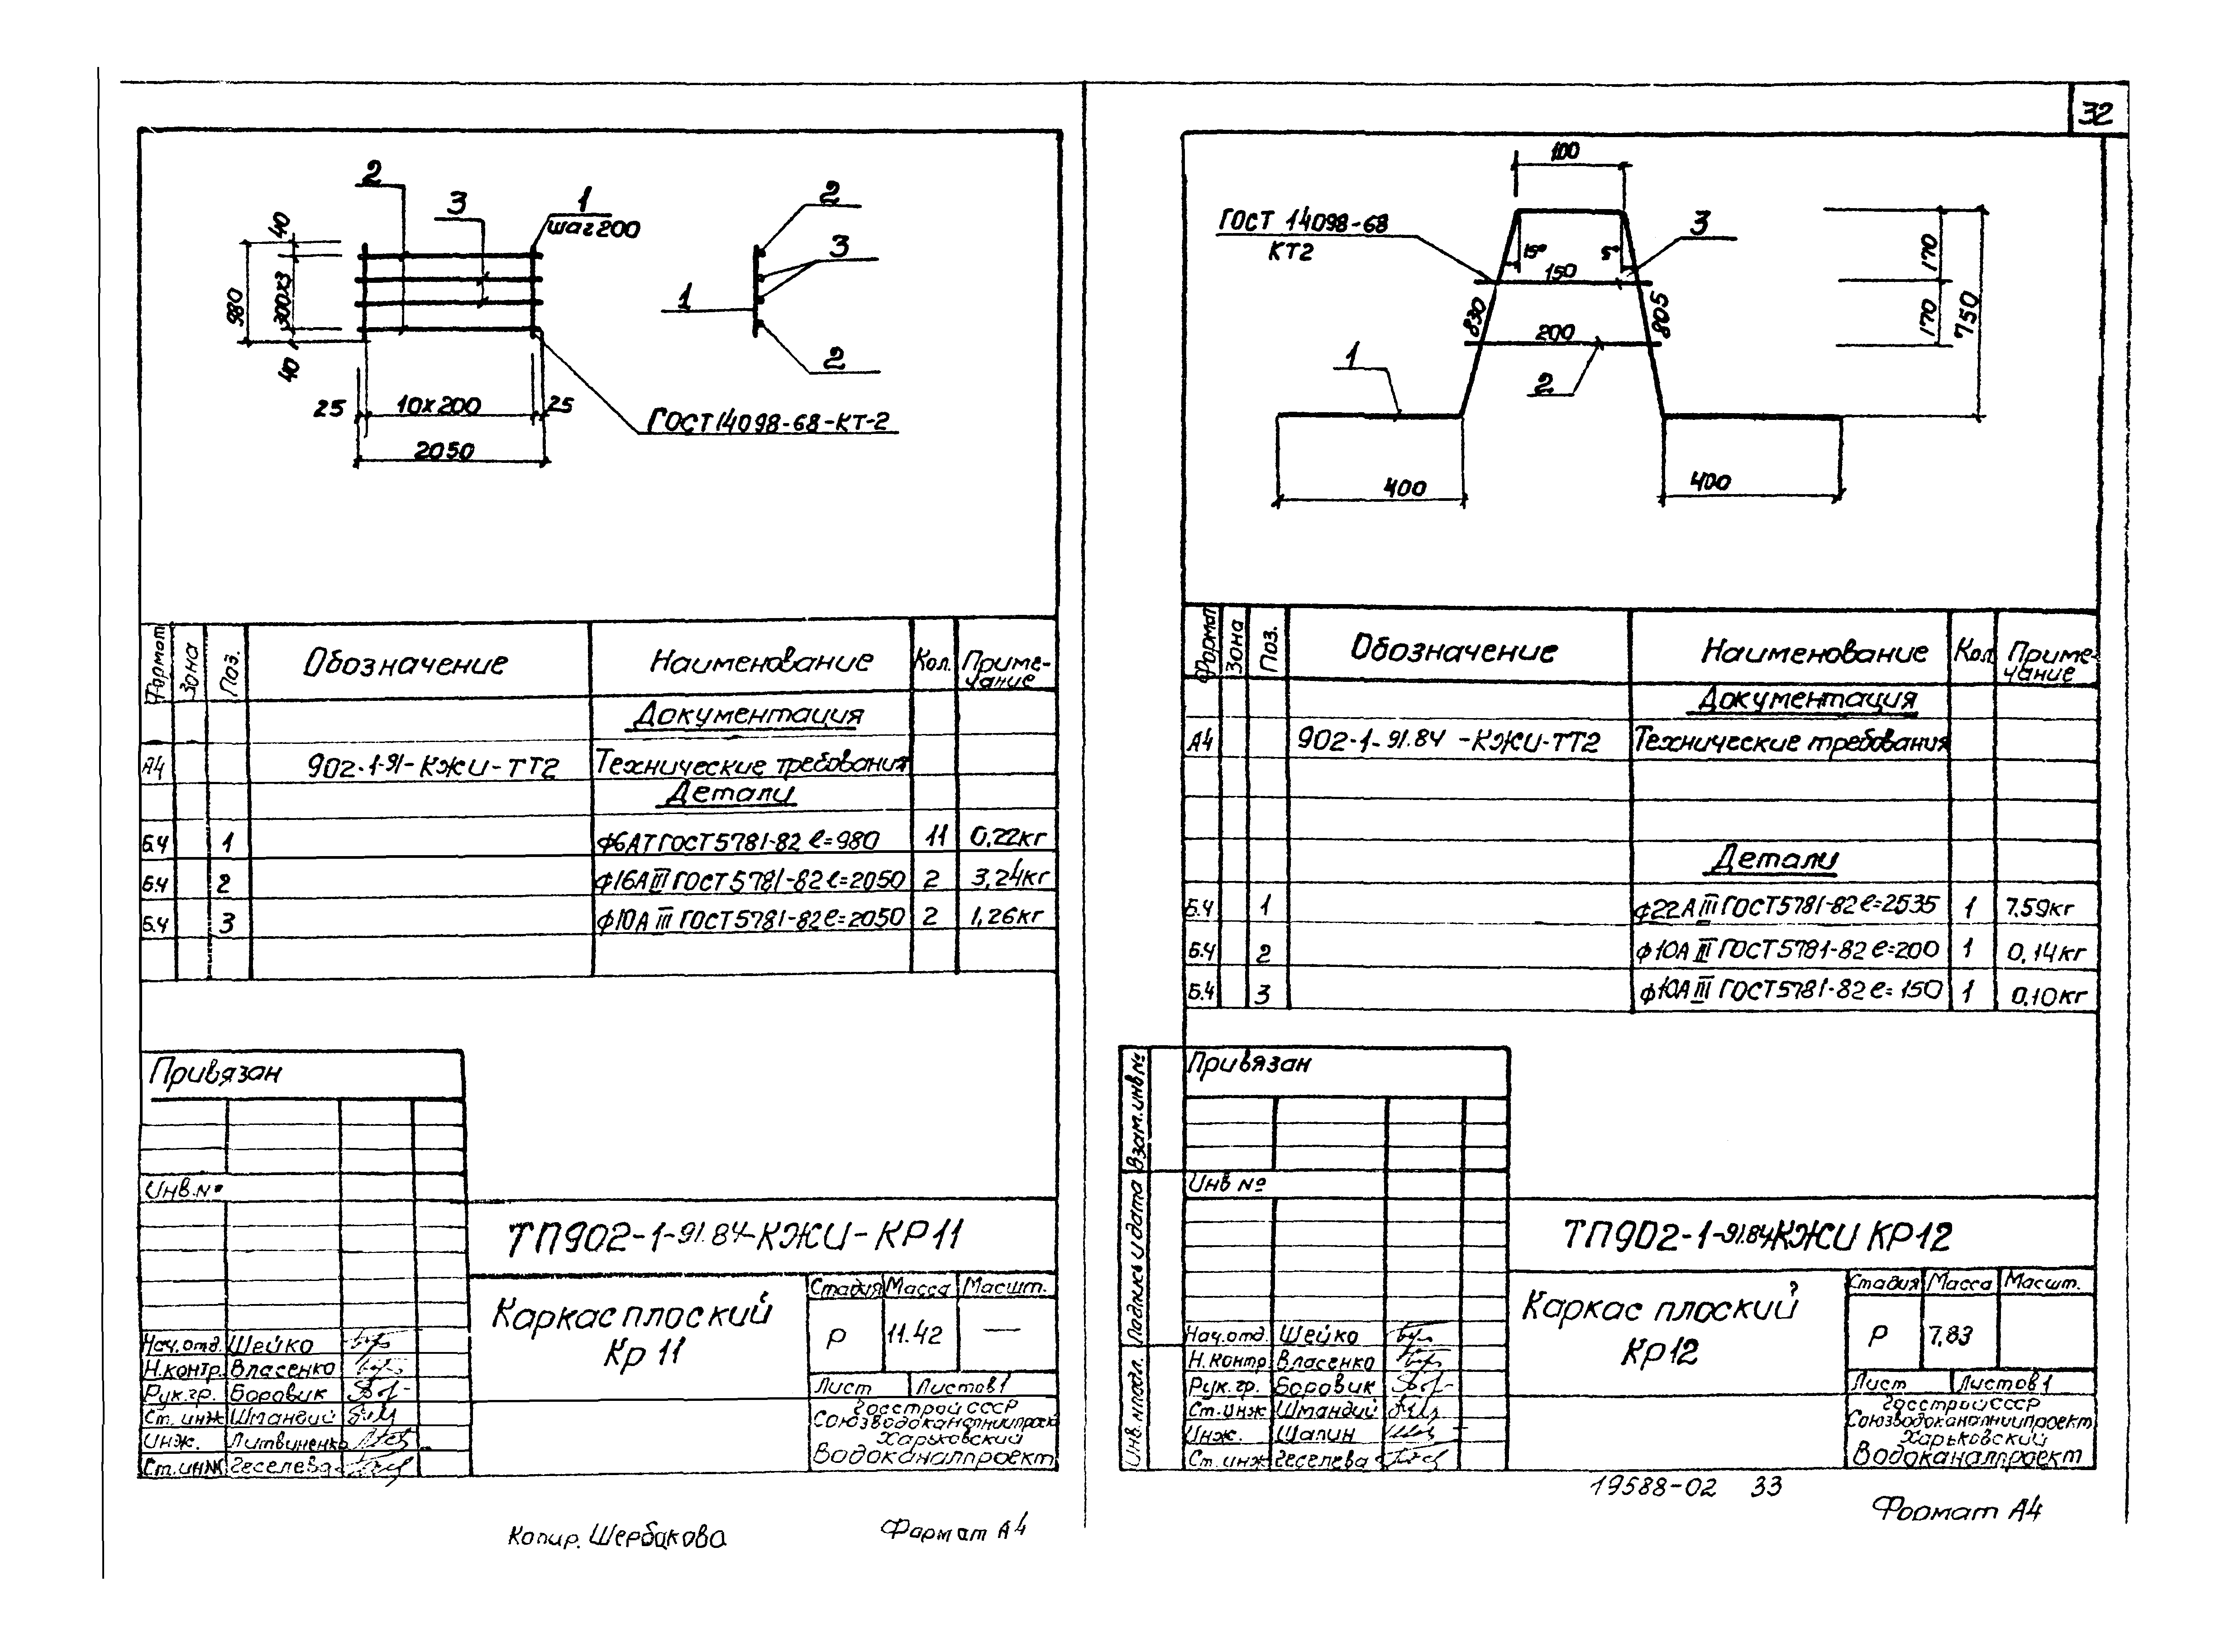 32
2
3
1
шаг 200
40
980
300х3
40
25
10х200
25
2050
ГОСТ 14098-68-КТ-2
2
3
1
2
Формат
Зона
Поз.
Обозначение
Наименование
Кол.
Приме-
чание
Документация
А4 902-1-91-КЖИ-ТТ2 Технические требования
Детали
Б.4 1 ф6АТ ГОСТ 5781-82 ℓ=980 11 0,22кг
Б.4 2 ф16АIII ГОСТ 5781-82 ℓ=2050 2 3,24кг
Б.4 3 ф10АIII ГОСТ 5781-82 ℓ=2050 2 1,26кг
Привязан
Инв.№
ТП902-1-91.84-КЖИ-КР11
Каркас плоский
Кр 11
Стадия Масса Масшт.
Р 11.42 —
Лист Листов 1
Госстрой СССР
Союзводоканалниипроект
Харьковский
Водоканалпроект
Нач.отд. Шейко
Н.контр. Власенко
Рук.гр. Боровик
Ст.инж Шмандий
Инж. Литвиненко
Ст.инж Геселева
Копир. Шербакова
Формат А4
100
ГОСТ 14098-68
КТ2
15°
5°
3
150
830
805
200
1
2
170
170
750
400
400
Формат
Зона
Поз.
Обозначение
Наименование
Кол
Приме-
чание
Документация
А4 902-1-91.84 -КЖИ-ТТ2 Технические требования
Детали
Б.4 1 ф22АIII ГОСТ 5781-82 ℓ=2535 1 7.59кг
Б.4 2 ф10АIII ГОСТ 5781-82 ℓ=200 1 0,14кг
Б.4 3 ф10АIII ГОСТ 5781-82 ℓ=150 1 0,10кг
Взам.инв№
Подпись и дата
Инв.№подл.
Привязан
Инв №
ТП902-1-91.84КЖИ КР12
Каркас плоский
Кр12
Стадия Масса Масшт.
Р 7,83
Лист Листов 1
Госстрой СССР
Союзводоканалниипроект
Харьковский
Водоканалпроект
Нач.отд. Шейко
Н.контр Власенко
Рук.гр. Боровик
Ст.инж Шмандий
Инж. Шапин
Ст.инж Геселева
19588-02 33
Формат А4